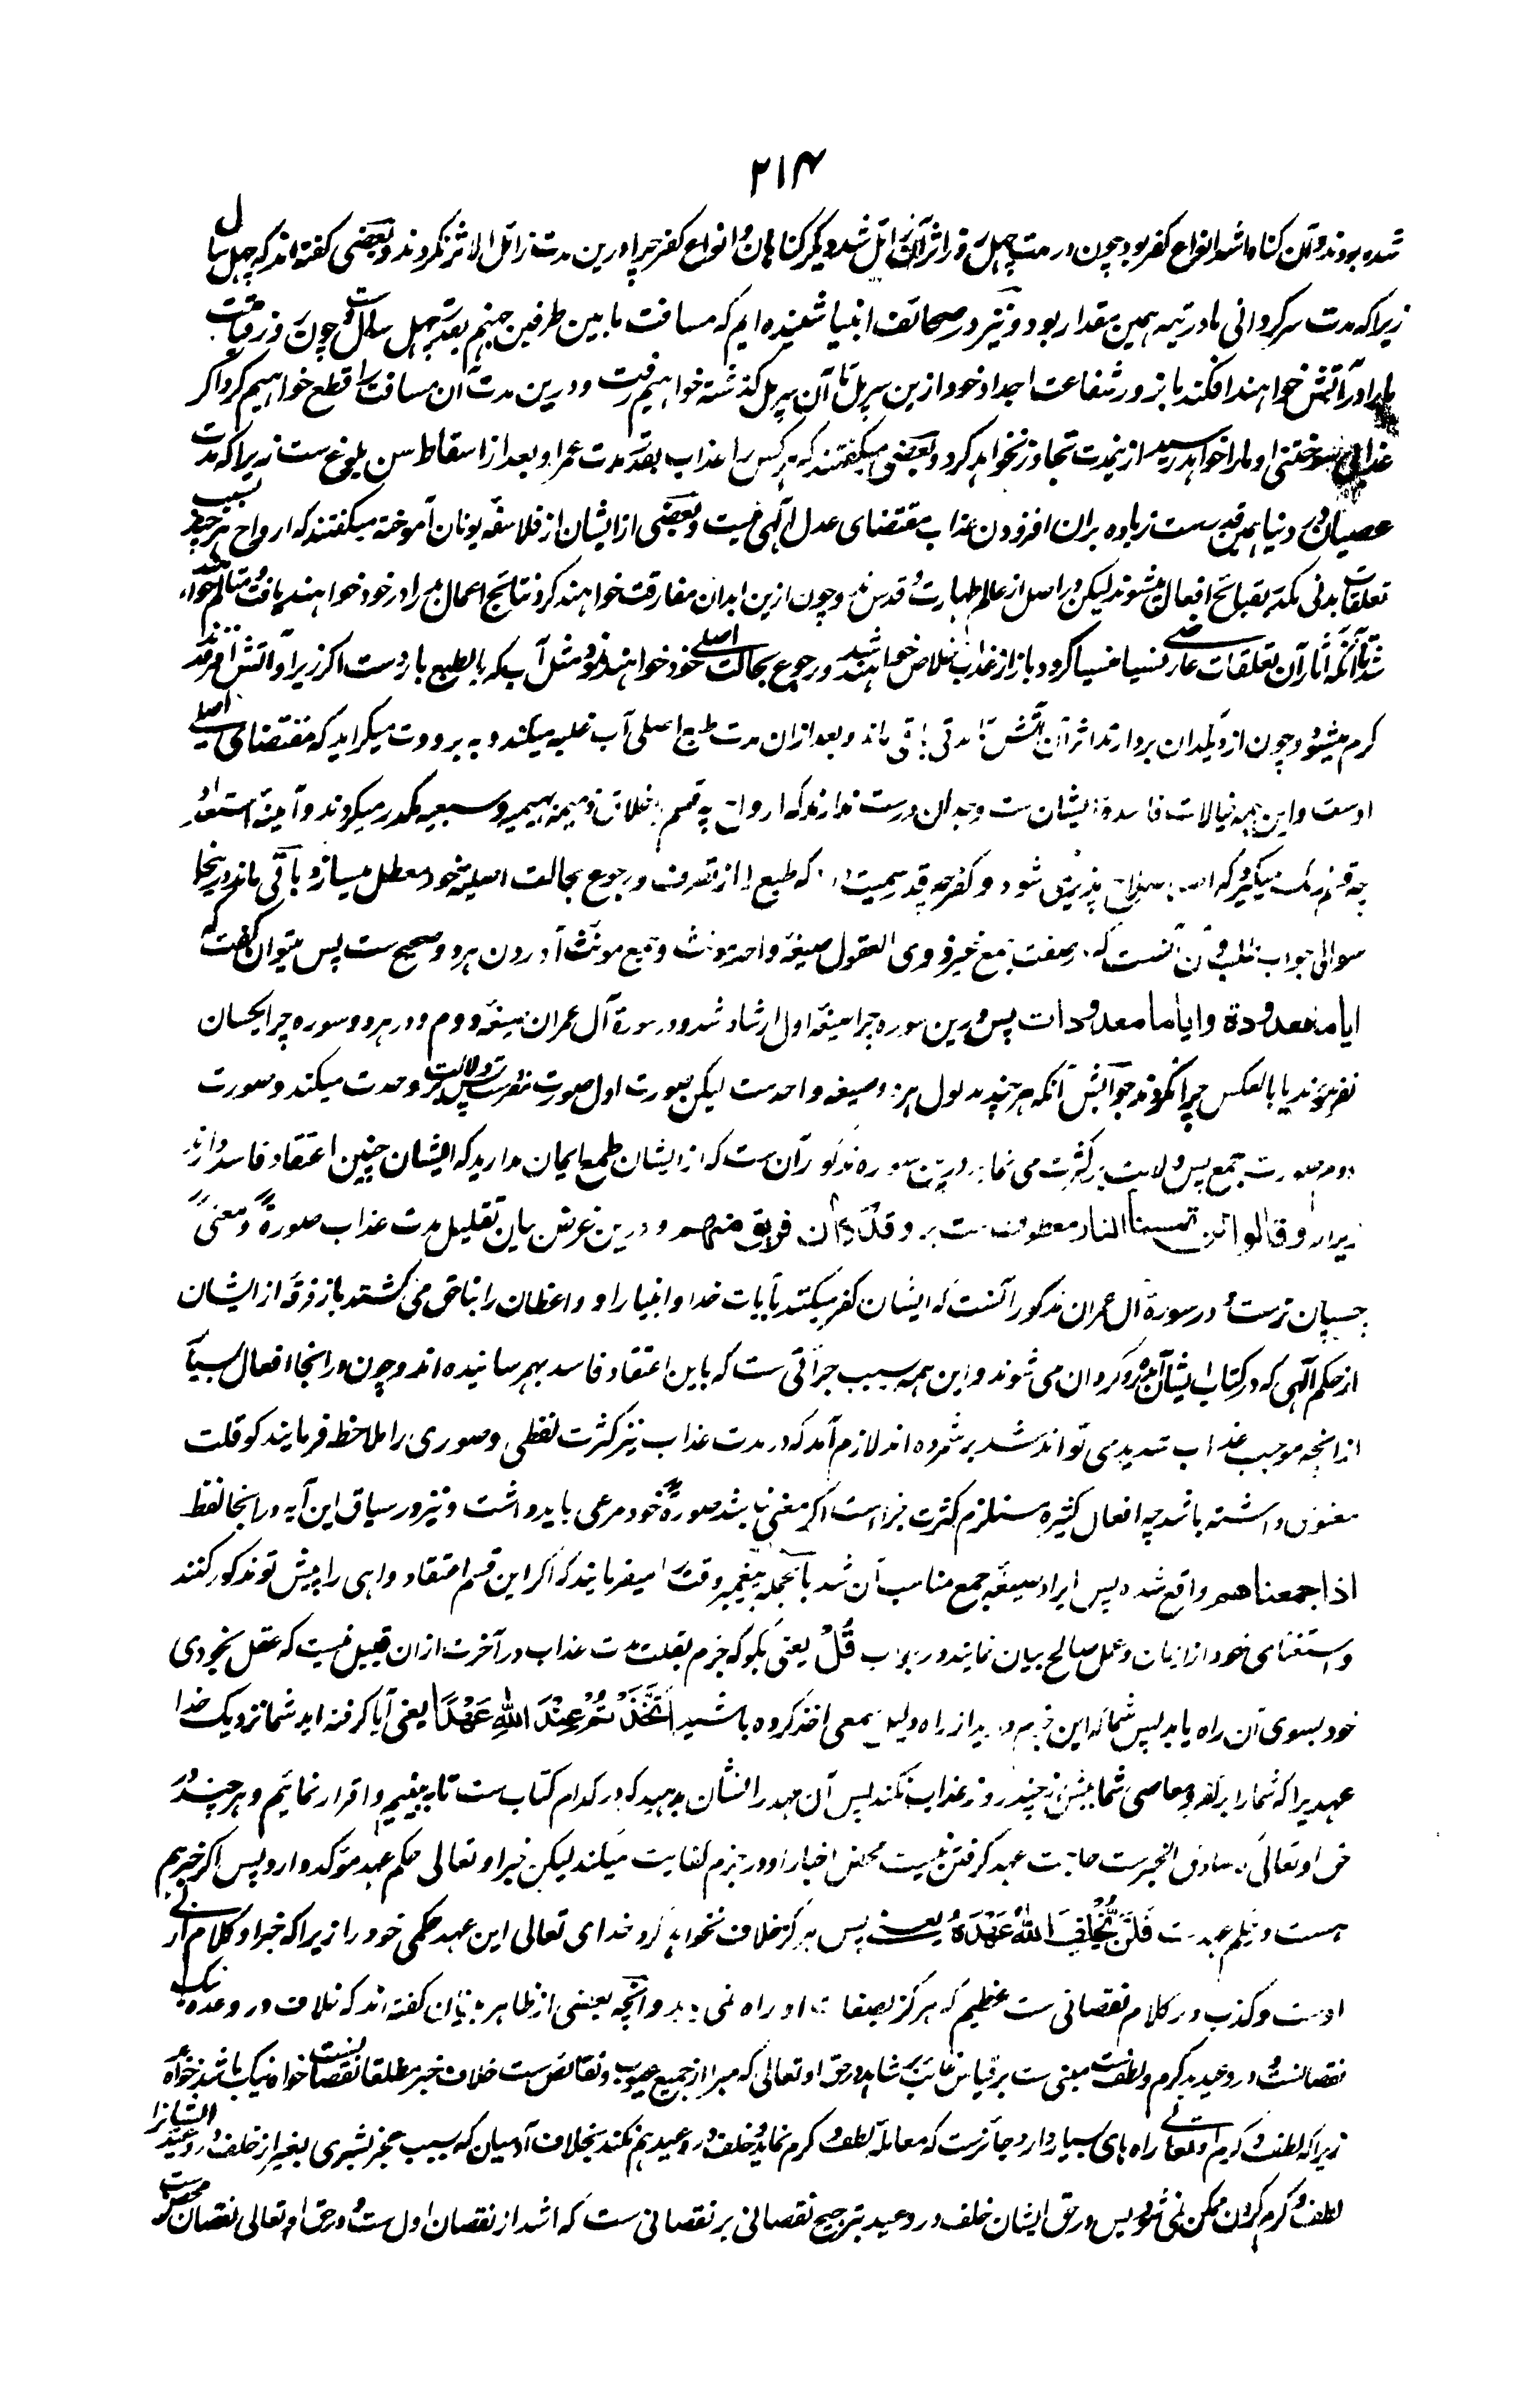 ۲۱۴
شده بودند و آن گناه اشد انواع کفر بود چون در مدت چهل روز اثر آن زائل شد دیگر گناهان و انواع کفر چرا درین مدت زائل الاثر نگردند و بعضی گفته اند که چهل سال
زیرا که مدت سرگردانی ما در تیه همین مقدار بود و نیز در صحائف انبیا شنیده ایم که مسافت ما بین طرفین جهنم بقدر چهل سال است و چون روز قیامت
ما را در آتش خواهند افکند بازور شفاعت اجداد خود ازین سر پل تا آن سر پل گذشته خواهیم رفت و درین مدت آن مسافت را قطع خواهیم کرد اگر
عذاب سوختنی او ما را خواهد رسید ازینمدت تجاوز نخواهد کرد و بعضی میگفتند که هر کس را عذاب بقدر مدت عمر او بعد از اسقاط سن بلوغ ست زیرا که مدت
عصیان در دنیا همین قدرست زیاده بران افزودن عذاب مقتضای عدل الهی نیست و بعضی از ایشان از فلاسفه یونان آموخته میگفتند که ارواح هر چند بسبب
تعلقات بدنی مکدر بقبائح افعال میشوند لیکن در اصل از عالم طهارت و قدس اند و چون ازین ابدان مفارقت خواهند کرد نتائج اعمال بد را در خود خواهند یافت و متالم خواهند
شد تا آنکه آثار آن تعلقات عارضی نسیا منسیا گردد باز از عذاب خلاص خواهند شد و رجوع بحالت اصلی خود خواهند نمود مثل آب که بالطبع باردست اگر زیر او آتش افروزند
گرم میشود و چون از دیگدان بردارند اثر آن آتش تا مدتی باقی ماند و بعد ازان مدت طبع اصلی آب غلبه میکند و به برودت میگراید که مقتضای اصلی
اوست و این همه خیالات فاسده ایشان ست وجدان درست ندارند که ارواح چه قسم باخلاق ذمیمه بهیمیه و سبعیه مکدر میگردند و آئینه استعداد
چه قسم زنگ میگیرد که اصلا صلاح پذیر نمی شود و کفر چه قدر سمیت دارد که طبع را از تصرف و رجوع بحالت اصلیه خود معطل میسازد باقی ماند درینجا
سوالی جواب طلب و آن آنست که در صفت جمع غیر ذوی العقول صیغه واحد مونث و جمع مونث آوردن هر دو صحیح ست پس میتوان گفت که
ایاما معدودة و ایاما معدودات پس درین سوره چرا صیغه اول ارشاد شد و در سورة آل عمران صیغه دوم و در هر دو سوره چرا یکسان
نفرمودند یا بالعکس چرا نکردند جوابش آنکه هر چند مدلول هر دو صیغه واحدست لیکن صورت اول صورت مفردست پس دلالت بر وحدت میکند و صورت
دوم صورت جمع پس دلالت بر کثرت می نماید و درین سوره مذکور آن ست که از ایشان طمع ایمان مدارید که ایشان چنین اعتقاد فاسد دارند
زیرا که و قالوا لن تمسنا النار معطوف ست بر و قد کان فریق منهم و درین غرض بیان تقلیل مدت عذاب صورةً و معنیً
چسپان ترست و در سورة آل عمران مذکور آنست که ایشان کفر میکنند بآیات خدا و انبیا را و واعظان را بناحق می کشتند باز فرقه از ایشان
از حکم الهی که در کتاب ایشان آمده روگردان می شوند و این همه بسبب جرأتی ست که باین اعتقاد فاسد بهم رسانیده اند و چون در انجا افعال بسیار
از آنچه موجب عذاب شدید می تواند شد بر شمرده اند لازم آمد که در مدت عذاب نیز کثرت لفظی و صوری را ملاحظه فرمایند گو قلت
معنوی داشته باشد چه افعال کثیره مستلزم کثرت جزاست اگر معنی نباشد صورةً خود مرعی باید داشت و نیز در سیاق این آیه در انجا لفظ
اذا جمعناهم واقع شده پس ایراد صیغه جمع مناسب آن شد بالجمله پیغمبر وقت را میفرمایند که اگر این قسم اعتقاد واهی را پیش تو مذکور کنند
و استغنای خود از ایمان و عمل صالح بیان نمایند در جواب قُلْ یعنی بگو که جزم بقلت مدت عذاب در آخرت ازان قبیل نیست که عقل بخودی
خود بسوی آن راه یابد پس شما که این جزم دارید از راه دلیل سمعی اخذ کرده باشید اَتَّخَذْتُمْ عِنْدَ اللّٰهِ عَهْدًا یعنی آیا گرفته اید شما نزدیک خدا
عهدی را که شما را بر کفر و معاصی شما بیش از چند روز عذاب نکند پس آن عهد را نشان بدهید که در کدام کتاب ست تا ببینیم و اقرار نمائیم و هر چند در
حق او تعالی که صادق الخبرست حاجت عهد گرفتن نیست محض اخبار او در جزم کفایت میکند لیکن خبر او تعالی حکم عهد موکد دارد پس اگر خبر هم
هست در حکم عهدست فَلَنْ یُّخْلِفَ اللّٰهُ عَهْدَهٗ یعنی پس هرگز خلاف نخواهد کرد خدای تعالی این عهد حکمی خود را زیرا که خبر او کلام ازلی
اوست و کذب در کلام نقصانی ست عظیم که هرگز بصفات او راه نمی یابد و آنچه بعضی از ظاهر بینان گفته اند که خلاف در وعده نیک
نقصانست و در وعید بد کرم و لطف ست مبنی ست بر قیاس غائب بر شاهد در حق او تعالی که مبرا از جمیع عیوب و نقائص ست خلاف خبر مطلقا نقصان ست خواه نیک باشد خواه بد
زیرا که لطف و کرم او تعالی راه های بسیار دارد و جائزست که معامله لطف و کرم نماید و خلف در وعید هم نکند بخلاف آدمیان که بسبب عجز بشری بغیر از خلف در وعید ایشان را
لطف و کرم کردن ممکن نمی شود پس در حق ایشان خلف در وعید ترجیح نقصانی بر نقصانی ست که اشد از نقصان اول ست و در حق او تعالی نقصان محض ست که